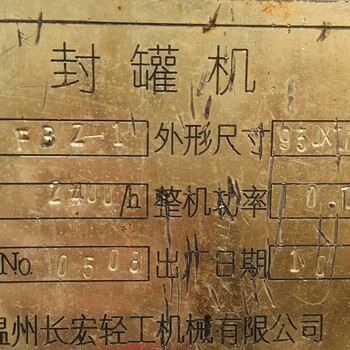 封罐机
FBZ-1 外形尺寸 930X
2400/h 整机功率 0.
No. 0503 出厂日期 10
温州长宏轻工机械有限公司